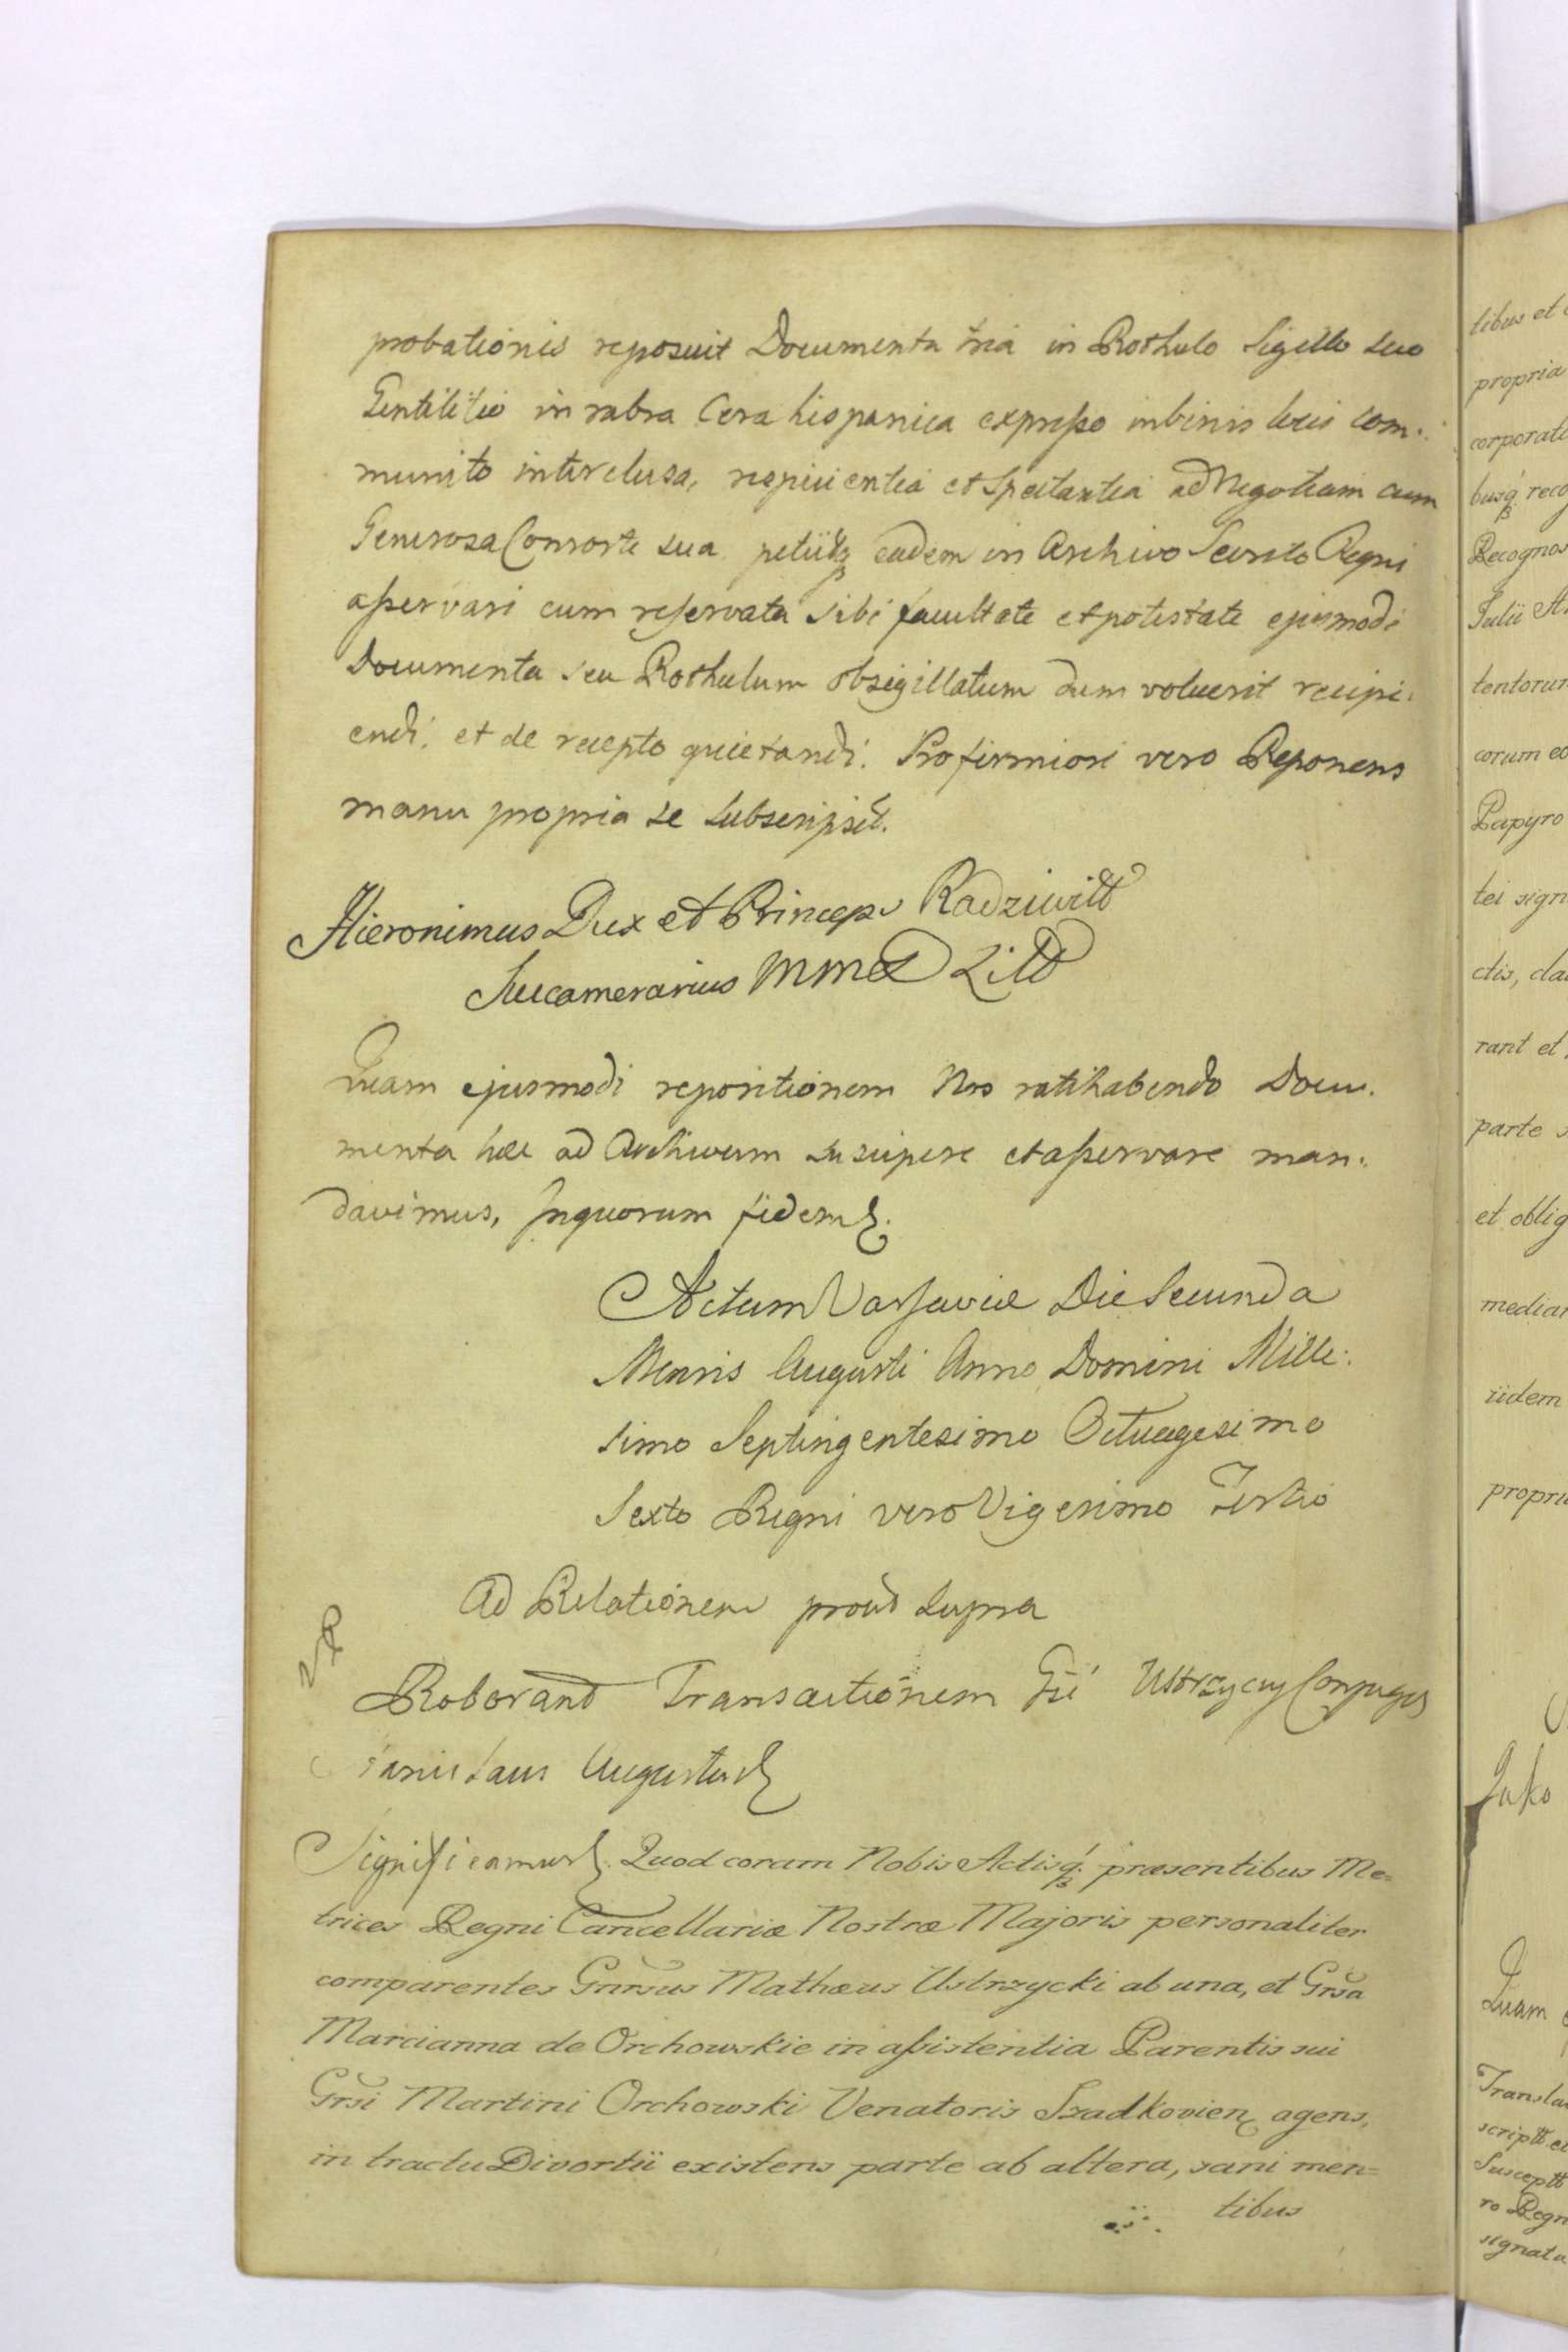 probationis reposuit Documenta tria in Rothulo Sigillo suo
Gentilitio in rubra Cera hispanica expreßo in binis locis com:
munito interclusa, respicientia et Spectantia ad Negotium cum
Generosa Consorte sua petiitq₃ eadem in Archivo Secreto Regni
aßervari cum reservata sibi facultate et potestate ejusmodi
Documenta seu Rothulum obsigillatum dum voluerit recipi:
endi, et de recepto quietandi. Pro firmiori vero Reponens
manu propria se subscripsit.
Hieronimus Dux et Princeps Radziwiłł
Succamerarius MMD Litt
Quam ejusmodi repositionem Nos ratihabendo Docu:
menta hæc ad Archivum suscipere et aßervare man:
davimus, In quorum fidem
Actum Varsaviæ Die Secunda
Mensis Augusti Anno Domini Mille:
simo Septingentesimo Octuagesimo
Sexto Regni vero Vigesimo Tertio
Ad Relationem prout supra
Roborant Transactionem Gsi Ustrzyccy Conjuges
Stanislaus Augustus
Significamus Quod coram Nobis Actisq́₃ præsentibus Me=
trices Regni Cancellariæ Nostræ Majoris personaliter
comparentes Gnrsus Mathæus Ustrzycki ab una, et Grsa
Marcianna de Orchowskie in aßistentia Parentis sui
Grsi Martini Orchowski Venatoris Szadkovien agens,
in tractu Divortii existens parte ab altera, sani men=
tibus
tibus et
propria
busq́₃
Recognos
Julii
corum
Papyro
tei sign
ctis,
rant et
parte
et oblig
iidem
Jako
Quam
ro Regn
signata